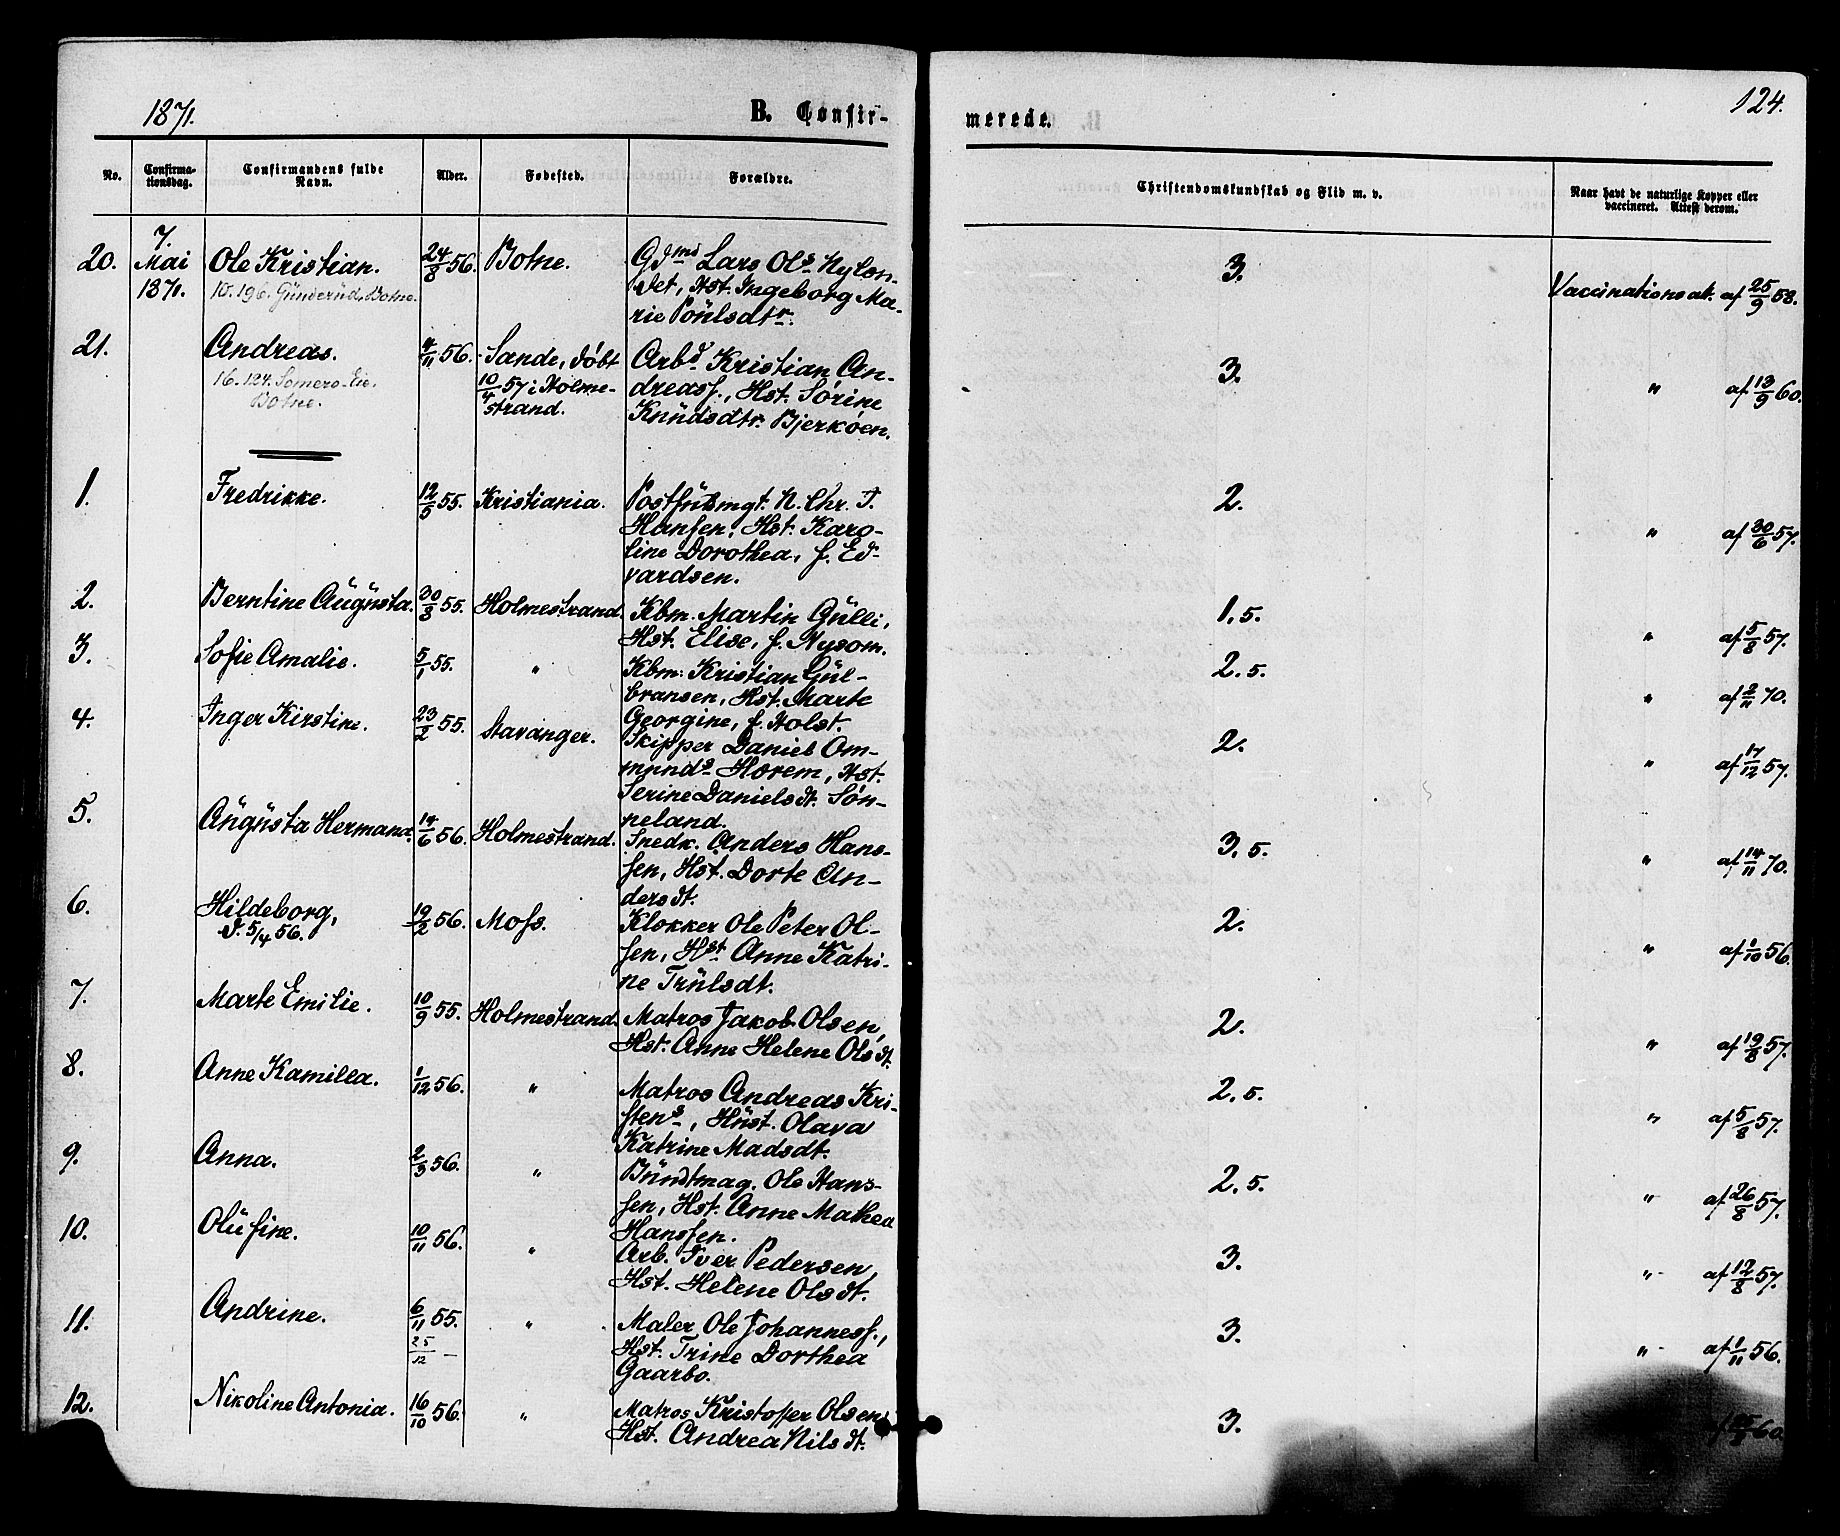 1871.
B. Confir-
merede.
124.
No.
Confirma-
tionsdag.
Confirmandens fulde
Navn.
Alder.
Fødested.
Forældre.
Christendomskundskab og Flid m. v.
Naar havt de naturlige Kopper eller
vaccineret. Attest derom.
20. 7. Mai 1871. Ole Kristian. 24/8 56. Botne. Gdmd Lars Ols. Nylon-
det, Hst. Ingeborg Ma-
rie Poulsdtr.
10.196. Gunderud, Botne.
3. Vaccinationsatt. af 25/9 58.
21. Andreas. 4/11 56. Sande, døbt
10/4 57 i Holme-
strand.
16.124. Somero-Eie.
Botne.
Arbd. Kristian An-
dreass., Hst. Sørine
Knudsdtr. Bjerkøen.
3. " af 13/9 60.
1. Fredrikke. 12/5 55. Kristiania. Postfuldmgt. N. Chr. T.
Hansen, Hst. Karo-
line Dorothea, f. Ed-
vardsen.
2. " af 30/6 57.
2. Berntine Augusta. 30/8 55. Holmestrand. Kbm. Martin Gulli,
Hst. Elise, f. Nysom.
1,5. " af 5/8 57.
3. Sofie Amalie. 5/1 55. " Kbm. Kristian Gul-
bransen, Hst. Marte
Georgine, f. Holst.
2,5. " af 2/11 70.
4. Inger Kirstine. 23/2 55. Stavanger. Skipper Daniel Om-
munds. Horem, Hst.
Serine Danielsdt. Søn-
neland.
2. " af 17/12 57.
5. Augusta Hermana. 14/6 56. Holmestrand. Snedk. Anders Hans-
sen, Hst. Dorte An-
dersdt.
3,5. " af 14/11 70.
6. Hildeborg, 19/2 56. Moss. Klokker Ole Peter Ol-
d. 5/4 56.
sen, Hst. Anne Katri-
ne Trulsdt.
2. " af 1/10 56.
7. Marte Emilie. 10/9 55. Holmestrand. Matros Jakob Olsen,
Hst. Anne Helene Olsdt.
2. " af 19/8 57.
8. Anne Kamilla. 1/12 56. " Matros Andreas Kri-
stens., Hust. Olava
Katrine Madsdt.
2,5. " af 5/8 57.
9. Anna. 2/3 56. " Bundtmag. Ole Hans-
sen, Hst. Anne Mathea
Hanssen.
2,5. " af 26/8 57.
10. Olufine. 10/11 56. " Arb. Iver Pedersen,
Hst. Helene Olsdt.
3. " af 12/8 57.
11. Andrine. 6/11 55. " Maler Ole Johanness.,
25/12 —
Hst. Trine Dorthea
Gaarbo.
3. " af 1/11 56.
12. Nikoline Antonia. 16/10 56. " Matros Kristoffer Olsen,
Hst. Andrea Nilsdt.
3. 60.